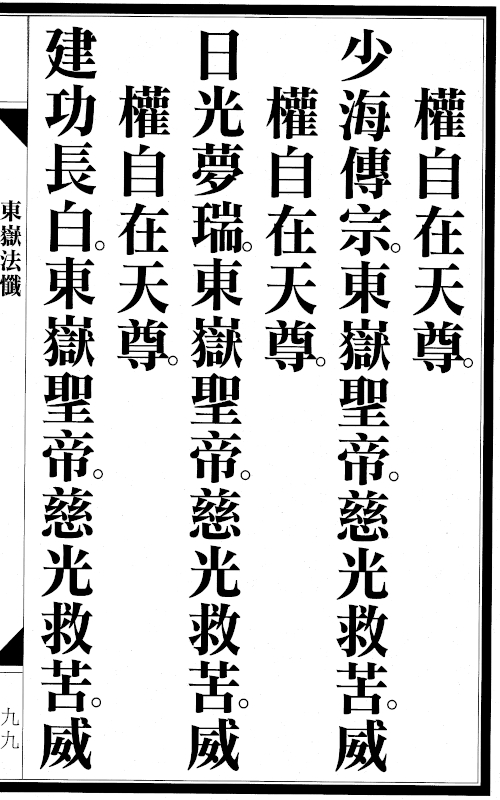 權自在天尊。
少海傳宗。東嶽聖帝。慈光救苦。威
權自在天尊。
日光夢瑞。東嶽聖帝。慈光救苦。威
權自在天尊。
建功長白。東嶽聖帝。慈光救苦。威
東嶽法懺
九九